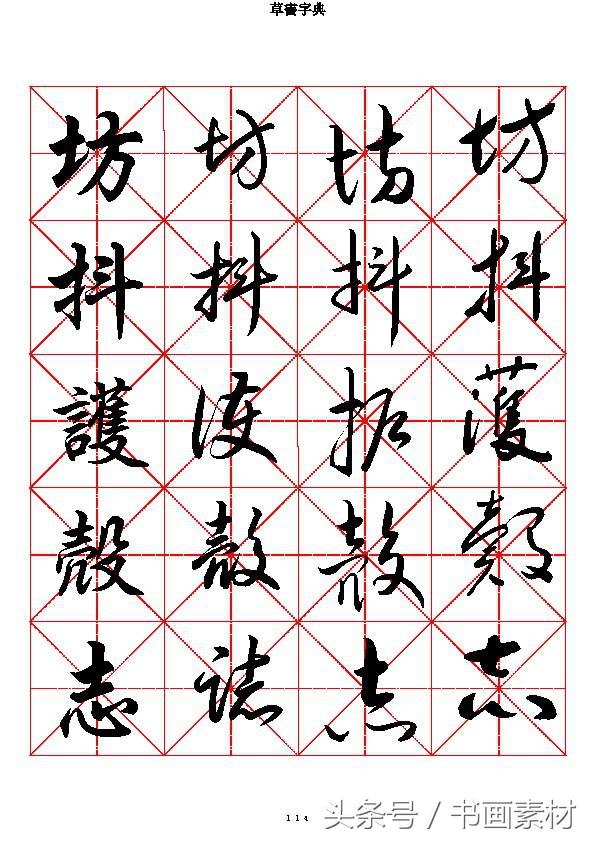 草書字典
坊坊坊坊
抖抖抖抖
護護护蒦
殼殼殼殼
志誌志志
114
头条号／书画素材